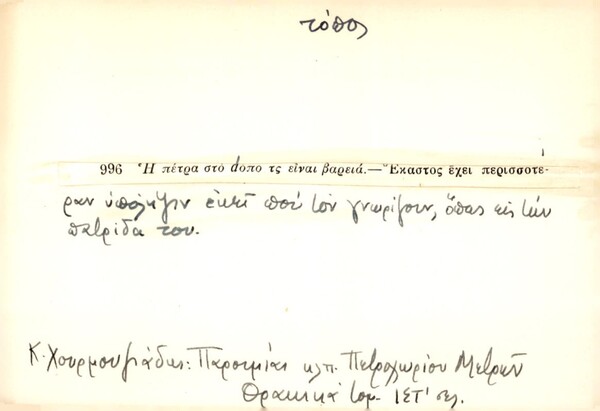 τόπος
996 Ἡ πέτρα στὸ dόπο τς εἶναι βαρειά.—Ἕκαστος ἔχει περισσοτέ-
ραν ὑπόληψιν ἐκεῖ ποὺ τὸν γνωρίζουν, ὅπως εἰς τὴν
πατρίδα του.
Κ. Χουρμουζιάδης: Παροιμίαι κλπ. Πετροχωρίου Μετρῶν
Θρακικὰ τομ. ΙΣΤ' σελ.